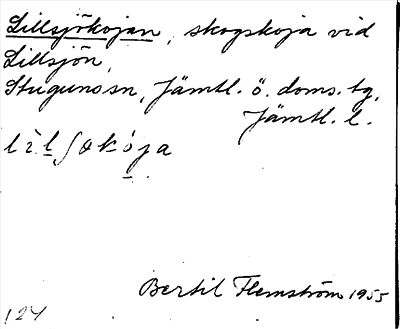 Lillsjökojan, skogskoja vid
Lillsjön,
Stuguns sn, Jämtl. ö. doms. tg,
Jämtl. l.
Bertil Flemström 1955
124